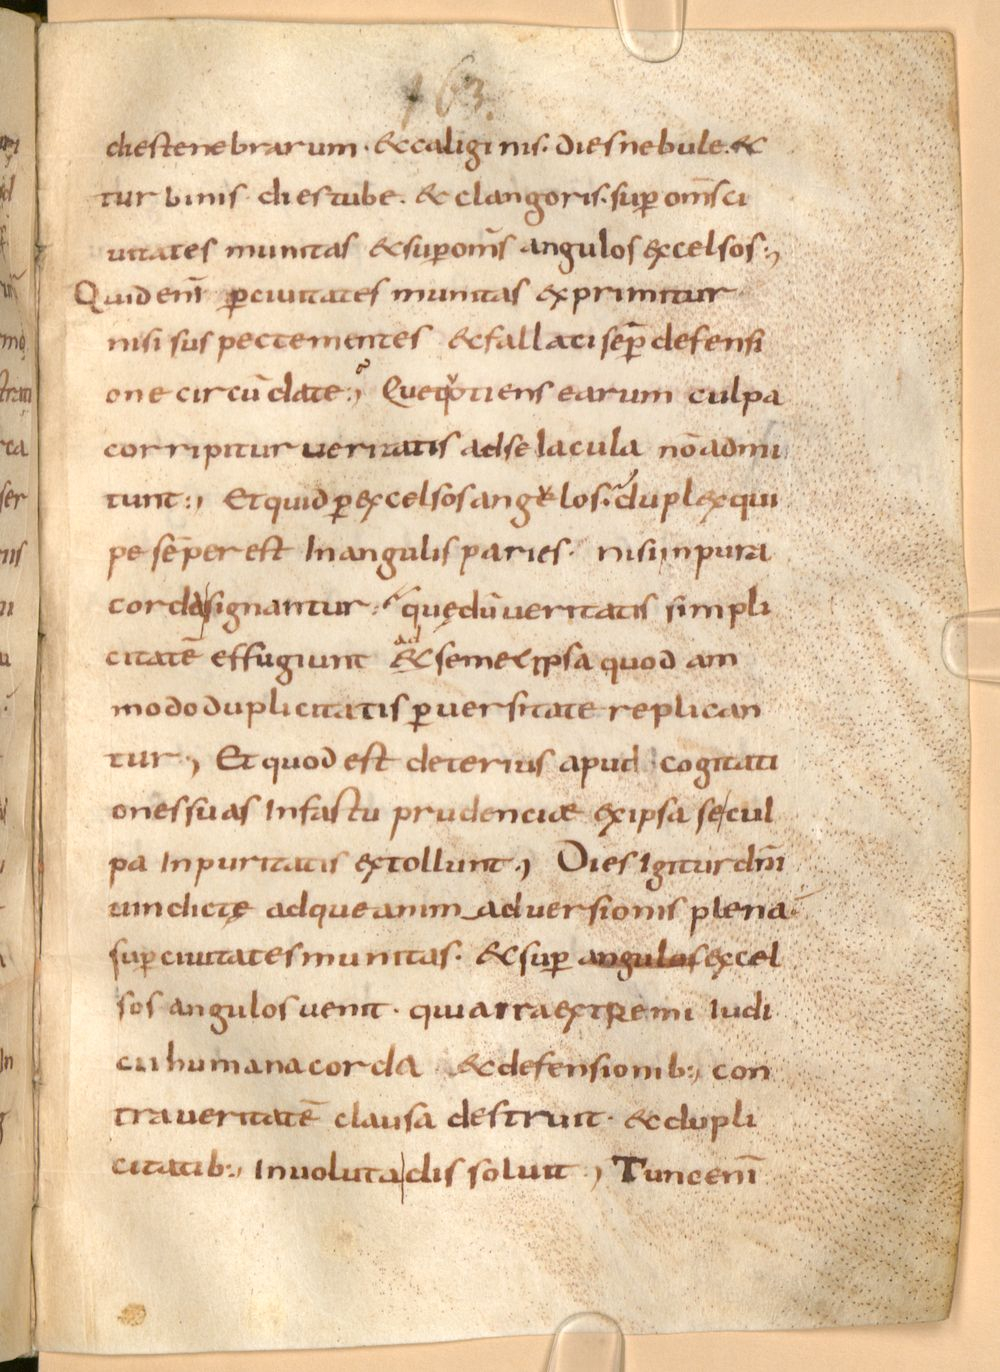 163.
dies tenebrarum · & caliginis · dies nebule · &
turbinis · dies tube · & clangoris · sup̄ om̄s ci
uitates munitas & sup̄ om̄s angulos excelsos ·,
Quid eni̅ ꝑ ciuitates munitas exprimitur
nisi suspecte mentes & fallaci sēp̄ defensi
one circu̅date ·, Que quotiens earum culpa
corripitur ueritatis ad se iacula no̅ admi
tunt ·, Et quid ꝑ excelsos angulos · duplex qui
pe se̅per est In angulis paries · nisi inpura
corda signantur · quę du̅ ueritatis simpli
citate̅ effugiunt ad & semetipsa quod am
modo duplicitatis ꝑuersitate replican
tur ·, Et quod est deterius apud cogitati
ones suas In fastu prudenciae ex ipsa se cul
pa Inpuritatis extollunt ·, Dies Igitur dn̅i
uindictę adque anim aduersionis plena
sup̄ ciuitates munitas · & sup̄ angulos excel
sos angulos uenit · quia ira extremi Iudi
cii humana corda & defensionib:, con
tra ueritate̅ clausa destruit · & dupli
citatib:, Inuoluta dissoluit ·, Tunc eni̅